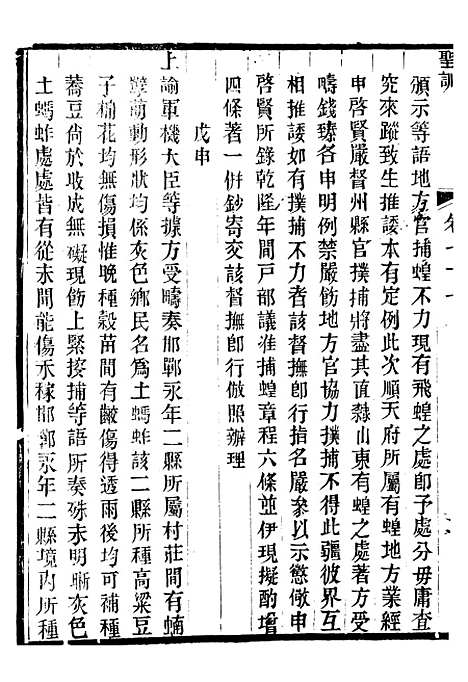 聖訓
卷
頒示等語地方官捕蝗不力現有飛蝗之處卽予處分毋庸查
究來蹤致生推諉本有定例此次順天府所屬有蝗地方業經
申啓賢嚴督州縣官撲捕將盡其直隸山東有蝗之處著方受
疇錢臻各申明例禁嚴飭地方官協力撲捕不得此疆彼界互
相推諉如有撲捕不力者該督撫卽行指名嚴叅以示懲儆申
啓賢所錄乾隆年間戶部議准捕蝗章程六條並伊現擬酌增
四條著一併鈔寄交該督撫卽行倣照辦理
戊申
上諭軍機大臣等據方受疇奏邯鄲永年二縣所屬村莊間有蝻
孽萌動形狀均係灰色鄉民名爲土螞蚱該二縣所種高粱豆
子棉花均無傷損惟晚種穀苗間有齩傷得透雨後均可補種
蕎豆尙於收成無礙現飭上緊搜捕等語所奏殊未明晰灰色
土螞蚱處處皆有從未聞能傷禾稼邯鄲永年二縣境內所種